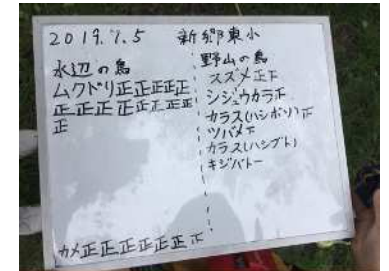 2019.7.5 新郷東小
水辺の鳥
ムクドリ正正正正正
正正正正正正正
正
カメ正正正正正正
野山の鳥
スズメ正下
シジュウカラ正
カラス(ハシボソ)正
ツバメ下
カラス(ハシブト)
キジバト一